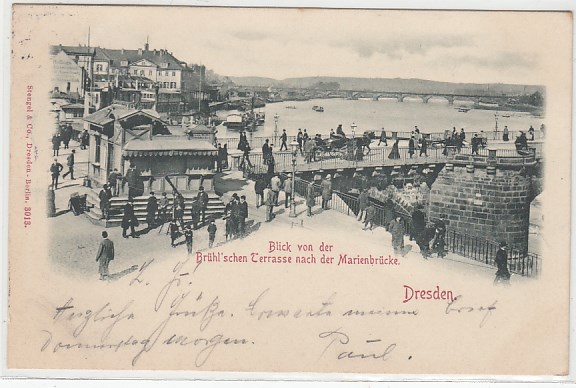 Stengel & Co., Dresden - Berlin. 3013.
Blick von der
Brühl'schen Terrasse nach der Marienbrücke.
Dresden.
L. G.
Herzliche Grüße. Erwarte meinen Brief
Donnerstag morgen.
Paul.